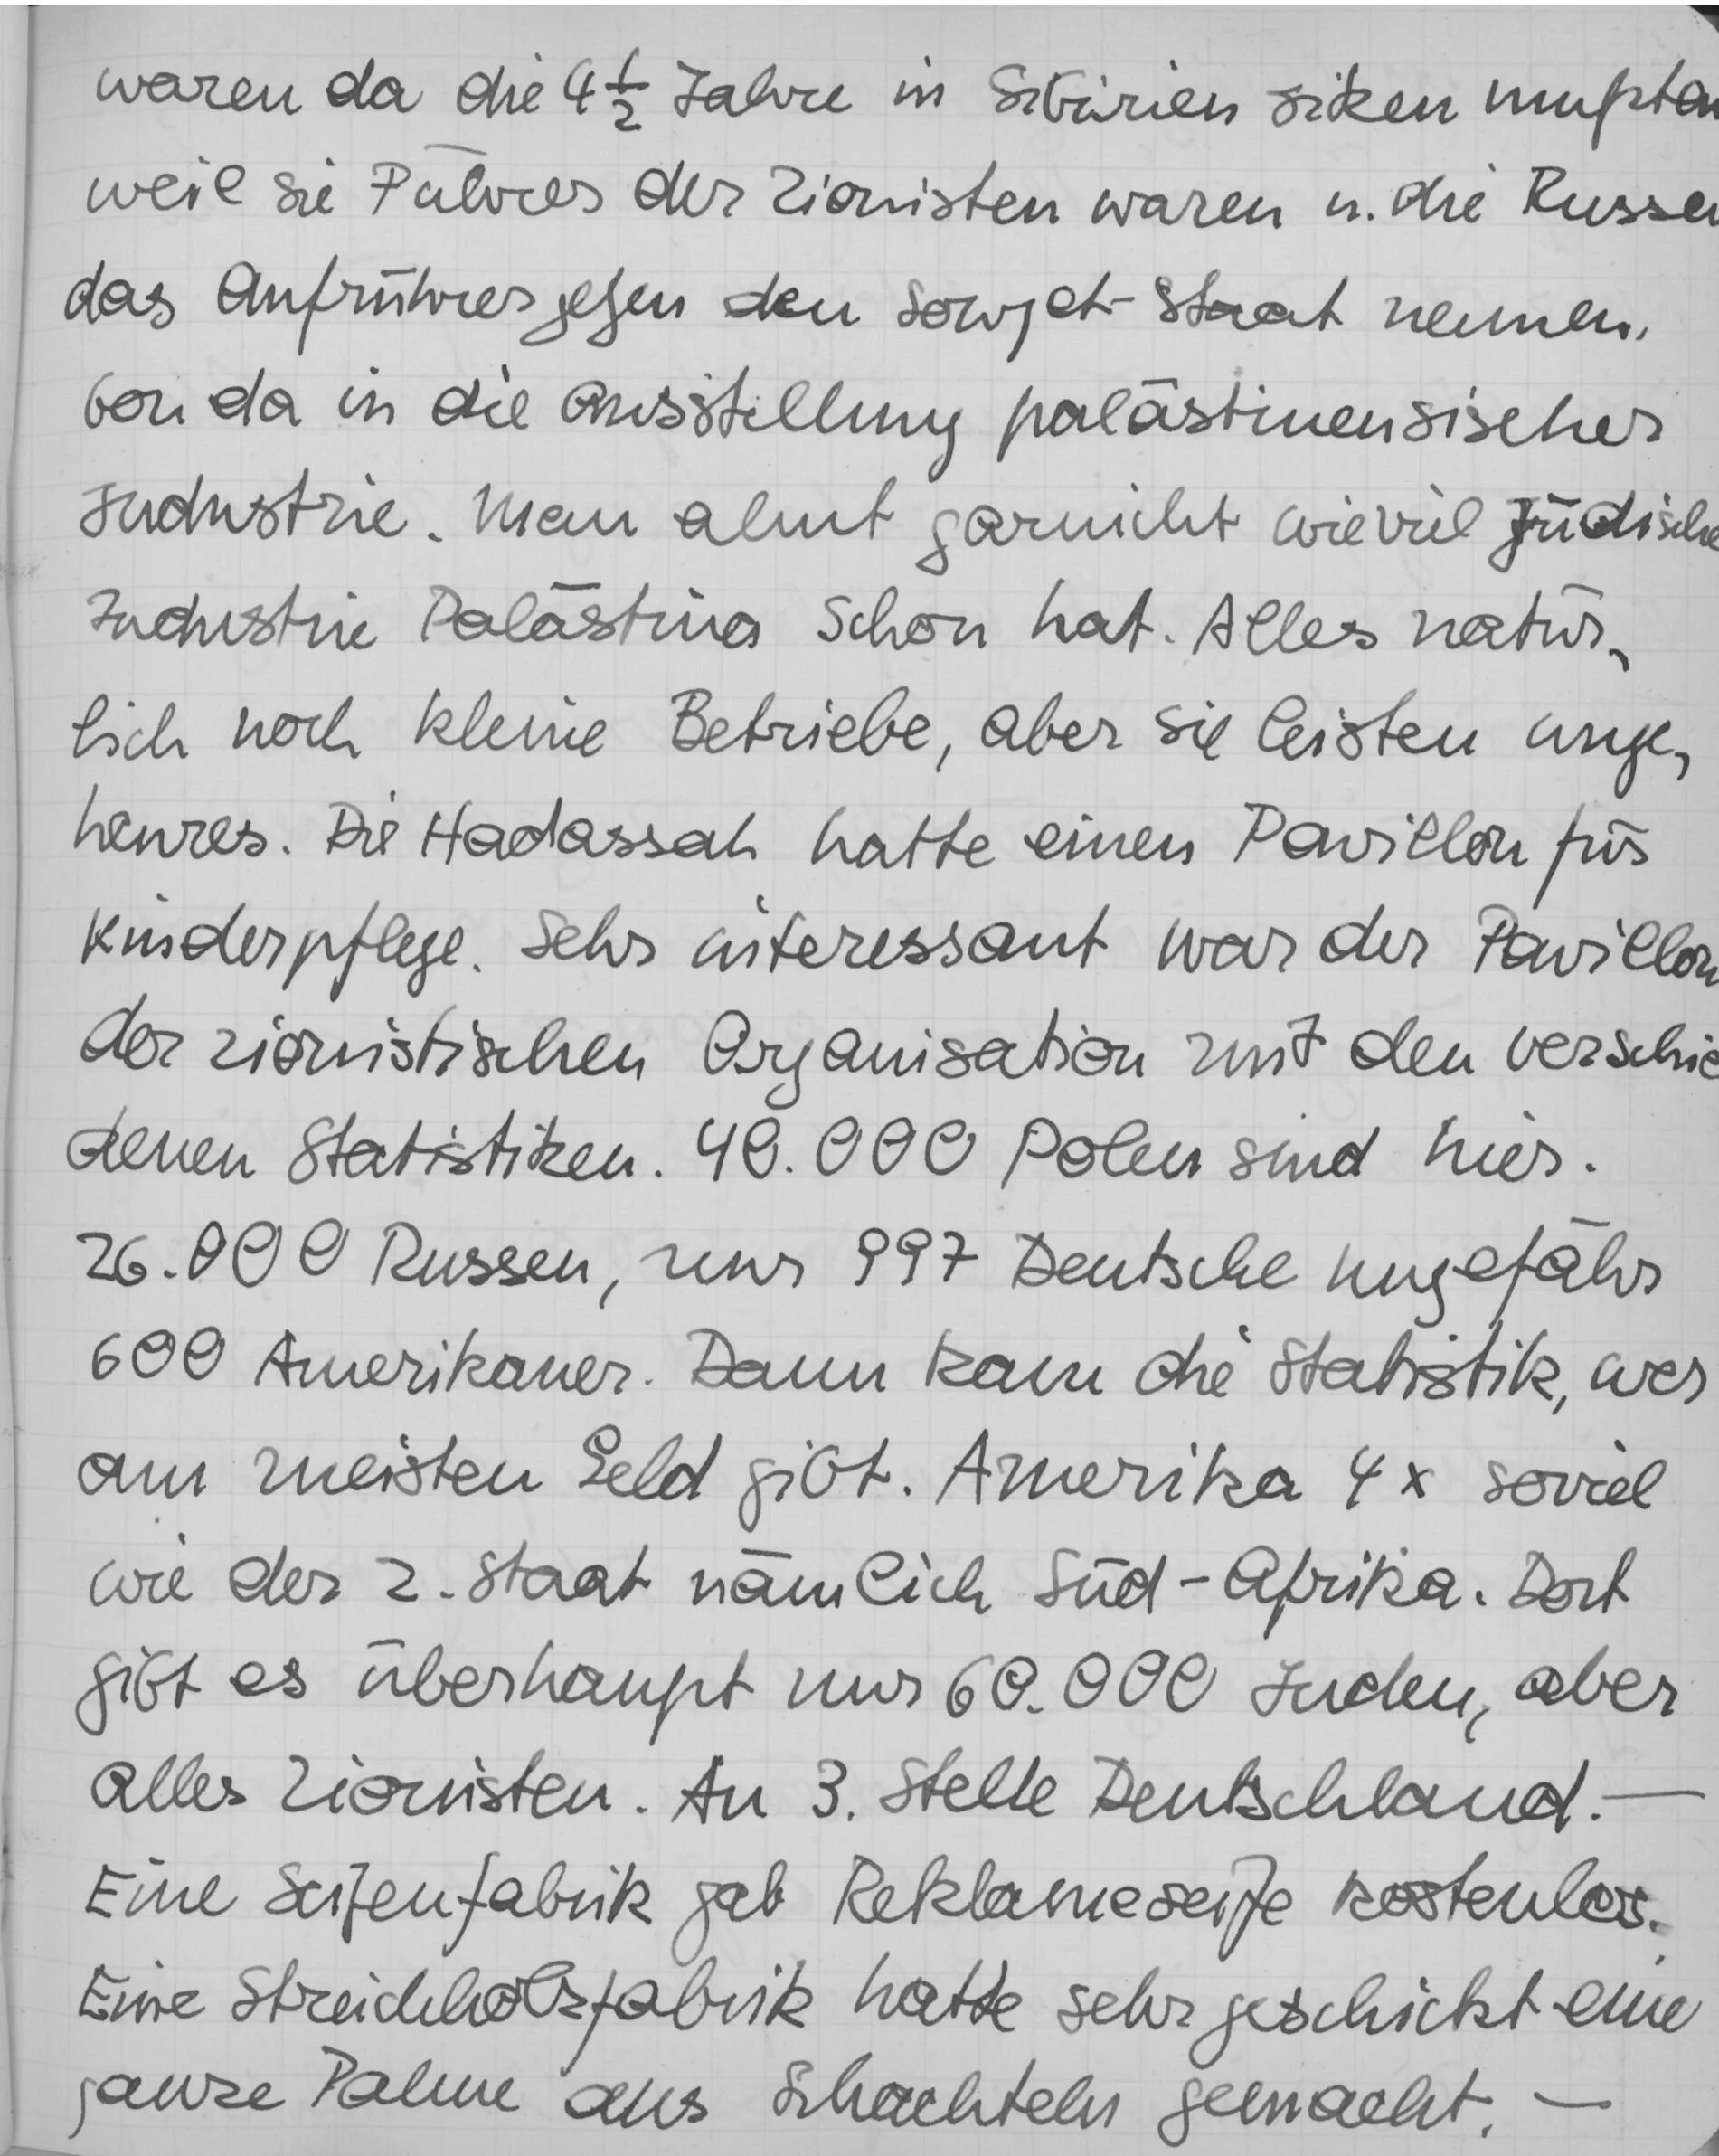 waren da die 4 ½ Jahre in Sibirien sitzen mußten
weil sie Führer der Zionisten waren u. die Russen
das Aufrührer gegen den Sowjet-Staat nennen.
Von da in die Ausstellung palästinensischer
Industrie. Man ahnt garnicht wieviel jüdische
Industrie Palästina schon hat. Alles natür-
lich noch kleine Betriebe, aber sie leisten unge-
heures. Die Hadassah hatte einen Pavillon für
Kinderpflege. Sehr interessant war der Pavillon
der zionistischen Organisation mit den verschie
denen Statistiken. 40.000 Polen sind hier.
26.000 Russen, nur 997 Deutsche ungefähr
600 Amerikaner. Dann kam die Statistik, wer
am meisten Geld gibt. Amerika 4 x soviel
wie der 2. Staat nämlich Süd-Afrika. Dort
gibt es überhaupt nur 60.000 Juden, aber
alles Zionisten. An 3. Stelle Deutschland. —
Eine Seifenfabrik gab Reklameseife kostenlos.
Eine Streichholzfabrik hatte sehr geschickt eine
ganze Palme aus Schachteln gemacht. —